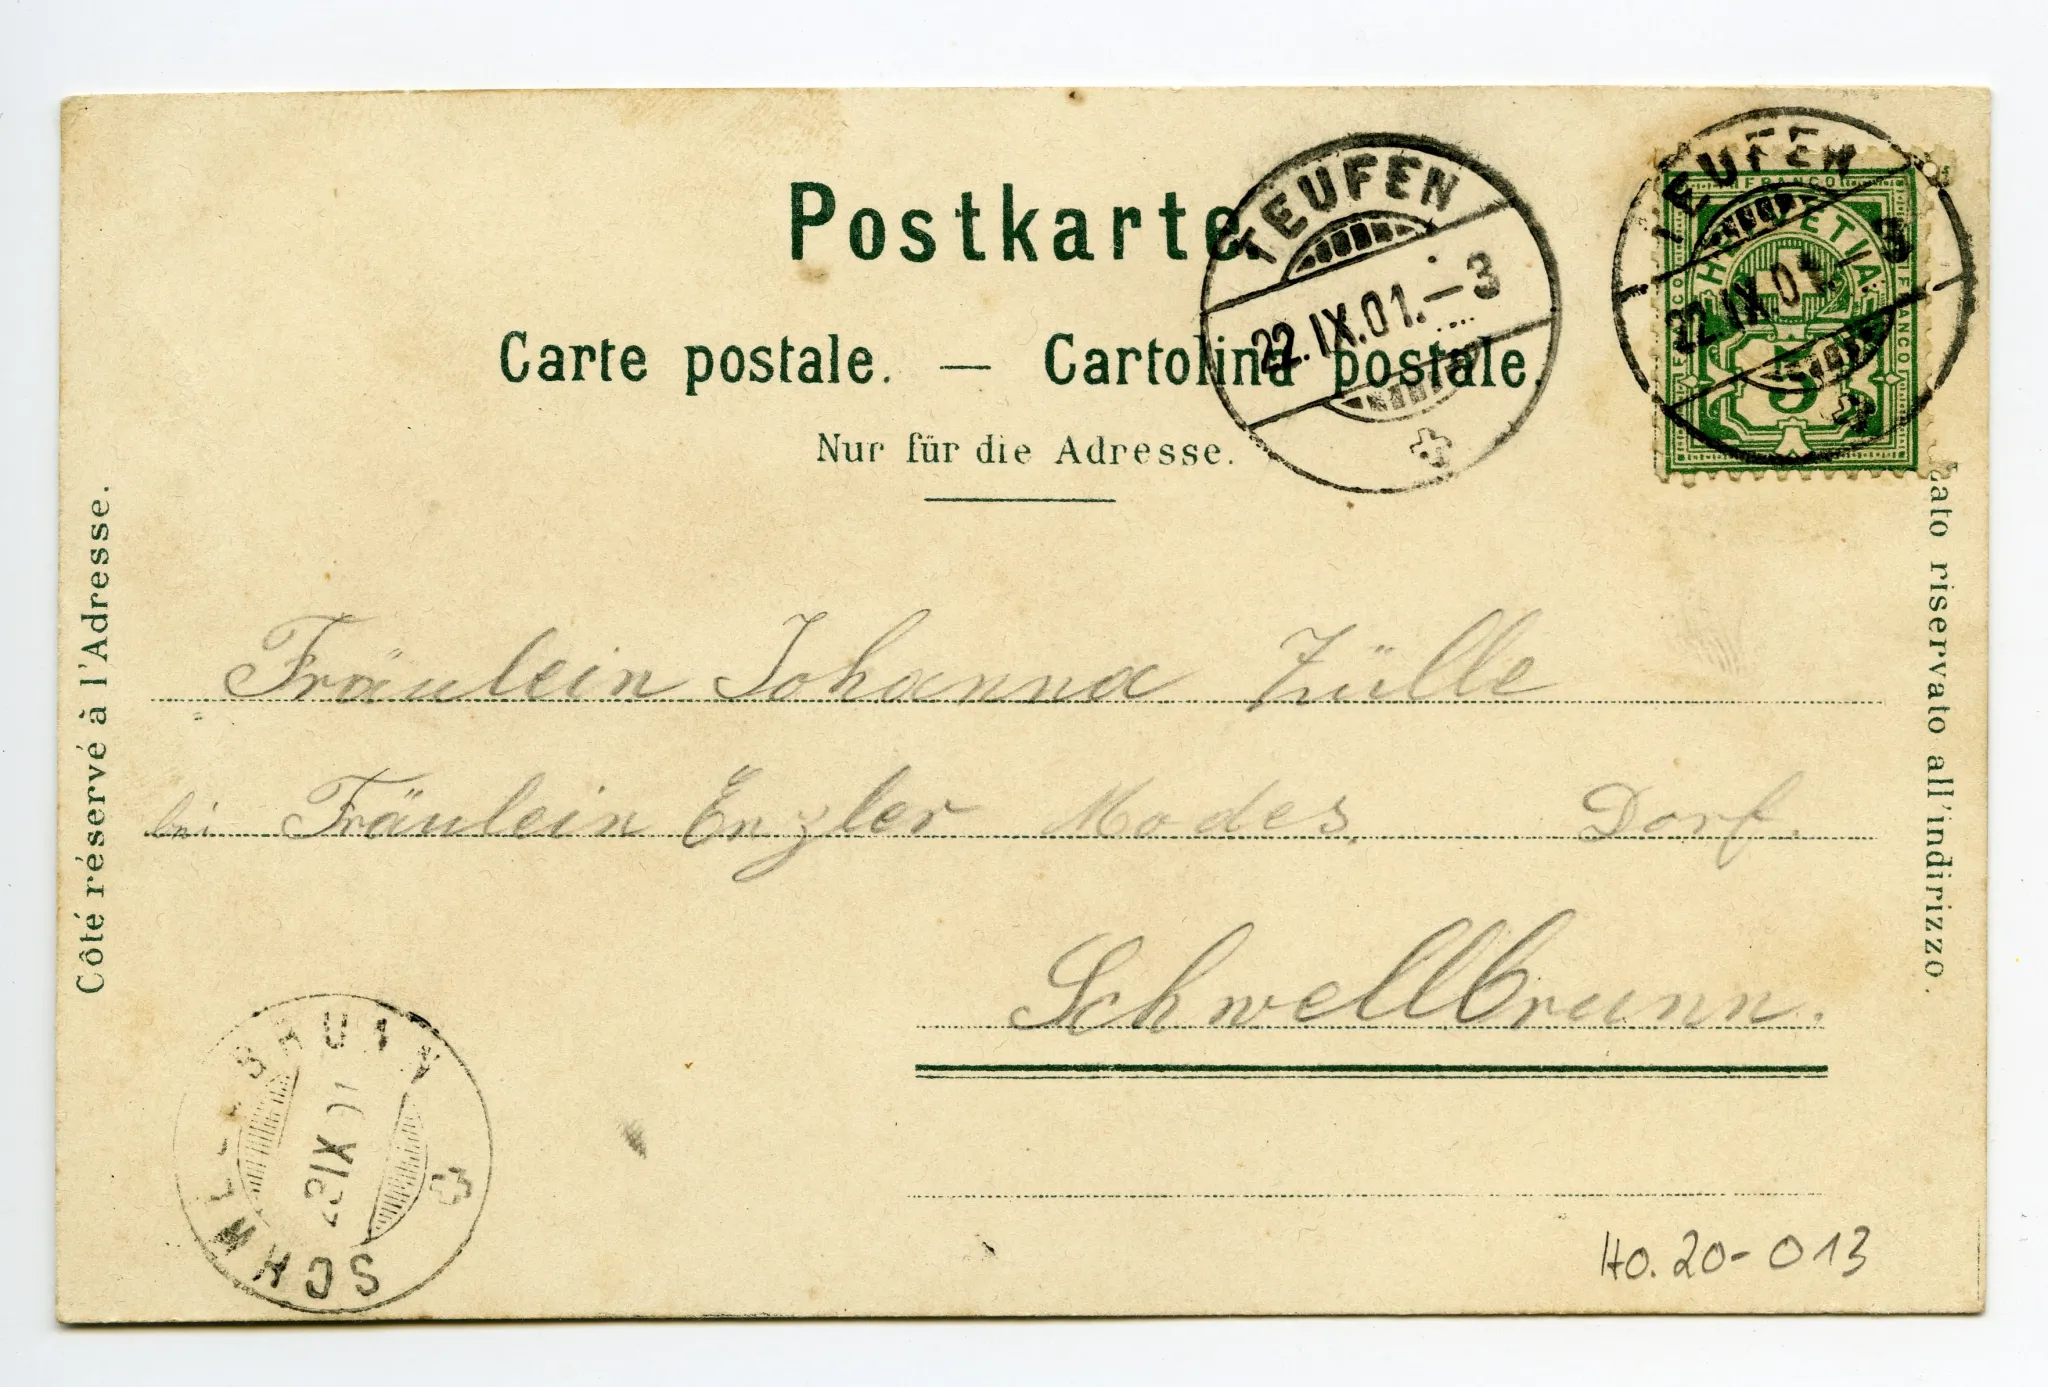 Postkarte.
Carte postale. — Cartolina postale.
Nur für die Adresse.
TEUFEN
22.IX.01.–3
TEUFEN
22.IX.01.
FRANCO
HELVETIA
FRANCO
FRANCO
5
Côté réservé à l'Adresse.
Lato riservato all'indirizzo.
Fräulein Johanna Zülle
bei Fräulein Enzler Modes. Dorf.
Schwellbrunn.
SCHWELLBRUNN
IX 01
HO.20-013